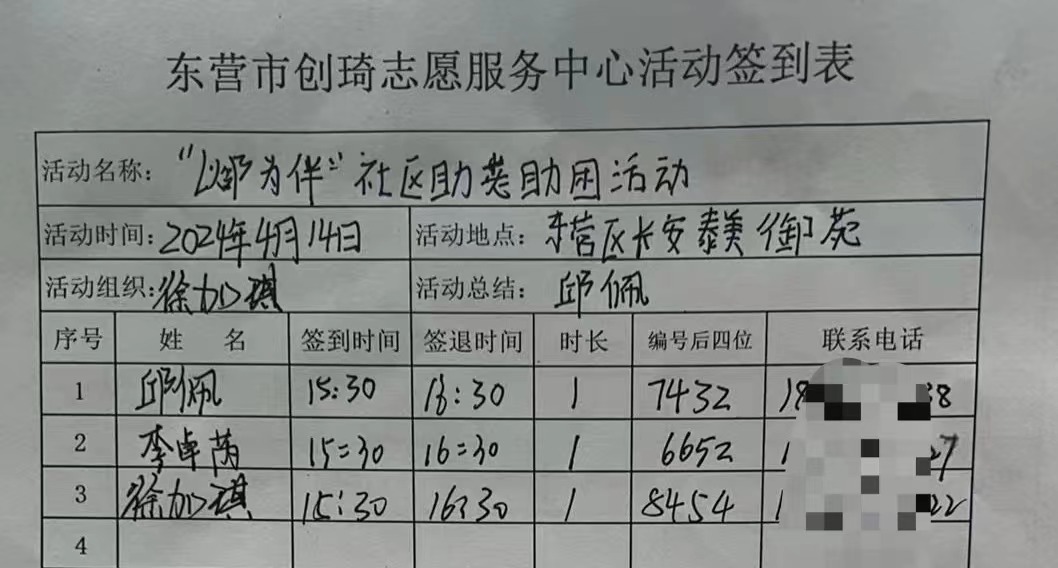 东营市创琦志愿服务中心活动签到表
活动名称：“以邻为伴”社区助老助困活动
活动时间：2024年4月14日 活动地点：东营区长安泰美御苑
活动组织：徐加琪 活动总结：邱佩
序号 姓名 签到时间 签退时间 时长 编号后四位 联系电话
1 邱佩 15:30 16:30 1 7432 18 38
2 李卓芮 15:30 16:30 1 6652 1 27
3 徐加琪 15:30 16:30 1 8454 1 22
4